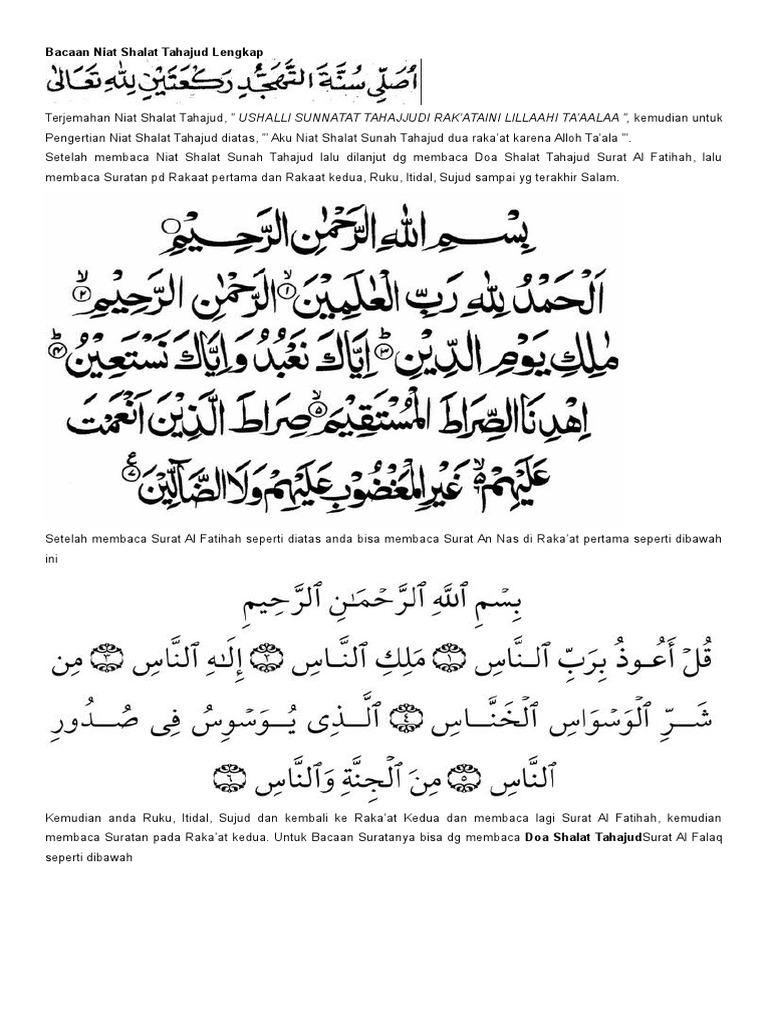 Bacaan Niat Shalat Tahajud Lengkap
اُصَلِّى سُنَّةَ التَّهَجُّدِ رَكْعَتَيْنِ لِلّٰهِ تَعَالٰى
Terjemahan Niat Shalat Tahajud, " USHALLI SUNNATAT TAHAJJUDI RAK'ATAINI LILLAAHI TA'AALAA ", kemudian untuk
Pengertian Niat Shalat Tahajud diatas, "' Aku Niat Shalat Sunah Tahajud dua raka'at karena Alloh Ta'ala "'.
Setelah membaca Niat Shalat Sunah Tahajud lalu dilanjut dg membaca Doa Shalat Tahajud Surat Al Fatihah, lalu
membaca Suratan pd Rakaat pertama dan Rakaat kedua, Ruku, Itidal, Sujud sampai yg terakhir Salam.
بِسْمِ اللهِ الرَّحْمٰنِ الرَّحِيْمِ
اَلْحَمْدُ لِلّٰهِ رَبِّ الْعٰلَمِيْنَ ۙ﴿١﴾ الرَّحْمٰنِ الرَّحِيْمِ ۙ﴿٢﴾
مٰلِكِ يَوْمِ الدِّيْنِ ۗ﴿٣﴾ اِيَّاكَ نَعْبُدُ وَاِيَّاكَ نَسْتَعِيْنُ ۗ﴿٤﴾
اِهْدِنَا الصِّرَاطَ الْمُسْتَقِيْمَ ۙ﴿٥﴾ صِرَاطَ الَّذِيْنَ اَنْعَمْتَ
عَلَيْهِمْ ۙ﴿٦﴾ غَيْرِ الْمَغْضُوْبِ عَلَيْهِمْ وَلَا الضَّآلِّيْنَ ࣖ﴿٧﴾
Setelah membaca Surat Al Fatihah seperti diatas anda bisa membaca Surat An Nas di Raka'at pertama seperti dibawah
ini
بِسْمِ ٱللَّهِ ٱلرَّحْمَـٰنِ ٱلرَّحِيمِ
قُلْ أَعُوذُ بِرَبِّ ٱلنَّاسِ ﴿١﴾ مَلِكِ ٱلنَّاسِ ﴿٢﴾ إِلَـٰهِ ٱلنَّاسِ ﴿٣﴾ مِن
شَرِّ ٱلْوَسْوَاسِ ٱلْخَنَّاسِ ﴿٤﴾ ٱلَّذِى يُوَسْوِسُ فِى صُدُورِ
ٱلنَّاسِ ﴿٥﴾ مِنَ ٱلْجِنَّةِ وَٱلنَّاسِ ﴿٦﴾
Kemudian anda Ruku, Itidal, Sujud dan kembali ke Raka'at Kedua dan membaca lagi Surat Al Fatihah, kemudian
membaca Suratan pada Raka'at kedua. Untuk Bacaan Suratanya bisa dg membaca Doa Shalat TahajudSurat Al Falaq
seperti dibawah